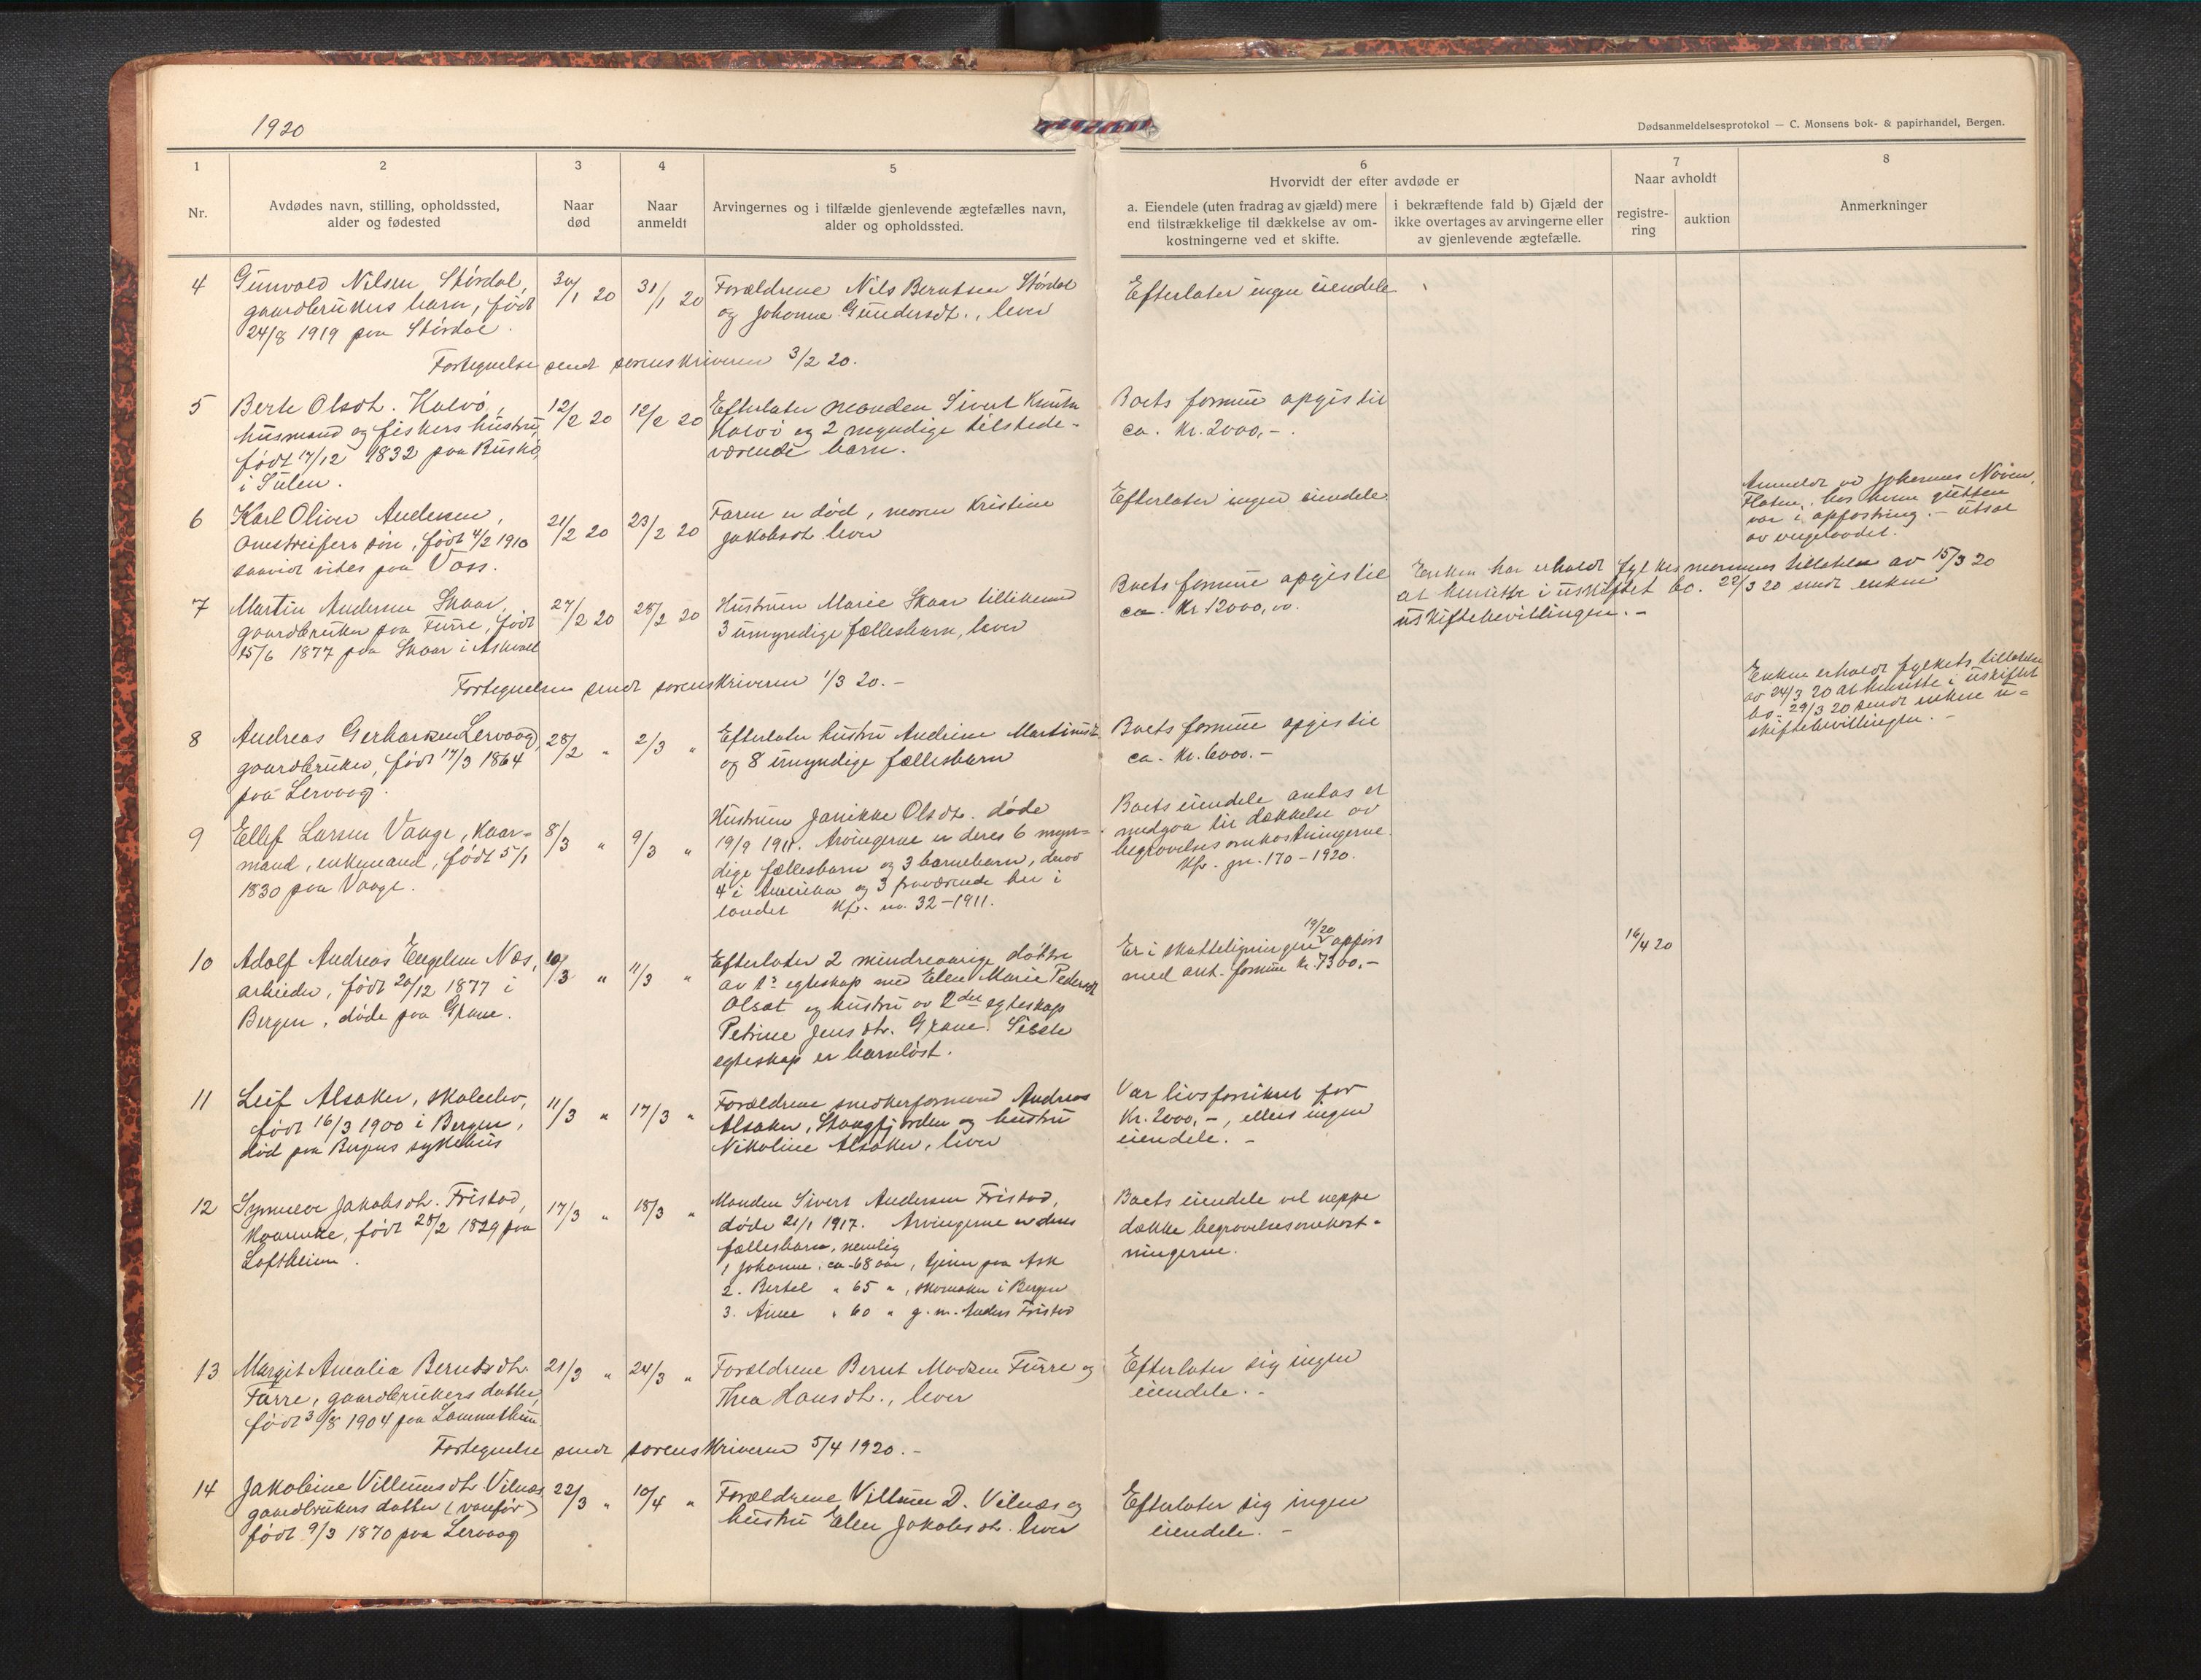 1920
Dødsanmeldelsesprotokol — C. Monsens bok- & papirhandel, Bergen.
1
2
3
4
5
6
7
8
Nr.
Avdødes navn, stilling, opholdssted,
alder og fødested
Naar
død
Naar
anmeldt
Arvingernes og i tilfælde gjenlevende ægtefælles navn,
alder og opholdssted.
Hvorvidt der efter avdøde er
a. Eiendele (uten fradrag av gjæld) mere
end tilstrækkelige til dækkelse av om-
kostningerne ved et skifte.
i bekræftende fald b) Gjæld der
ikke overtages av arvingerne eller
av gjenlevende ægtefælle.
Naar avholdt
registre-
ring
auktion
Anmerkninger
4
Gunvald Nilsen Stórdal,
gaardbrukers barn, født
24/8 1919 paa Stórdal.
30/1 20
31/1 20
Forældrene Nils Berntsen Stórdal
og Johanne Gundersdt., lever
Efterlater ingen eiendele
Fortegnelse sendt sorenskriveren 3/2 20.
5
Berte Olsdt. Kalvó,
husmand og fiskers hustru,
født 17/12 1832 paa Buskó,
i Sulen.
12/2 20
12/2 20
Efterlater manden Sivert Knuts.
Kalvó og 2 myndige tilstede-
værende barn.
Boets formue opgis til
ca. Kr. 2000,-.
6
Karl Oliver Andersen,
omstreifers søn, født 4/2 1910
saavidt vites paa Voss.
21/2 20
23/2 20
Faren er død, moren Kristine
Jakobsdt. lever
Efterlater ingen eiendele.
Anmeldt av Johannes
Flaten, hos hvem gutten
var i opfostring. - utsat
av vergeraadet.
7
Martin Andersen Skaar,
gaardbruker paa Furre, født
15/6 1877 paa Skaar i Askvoll
27/2 20
28/2 20
Hustruen Marie Skaar tillikemed
3 umyndige fællesbarn, lever
Boets formue opgis til
ca. Kr. 12000,00.
Enken har erholdt fylkesmannens tillatelse av 15/3 20
at hensitte i uskiftet bo. 22/3 20 sendt enken
uskiftebevillingen. -
Fortegnelsen sendt sorenskriveren 1/3 20. -
8
Andreas Gerhardsen Lervaag,
gaardbruker, født 17/3 1864
paa Lervaag.
28/2 "
2/3 "
Efterlater hustru Andrine Martinusdt.
og 8 umyndige fællesbarn
Boets formue opgis til
ca. Kr. 6000.-
Enken erholdt fylkets tillatelse
av 24/3 20 at hensitte i uskiftet
bo. 29/3 20 sendt enken u-
skiftebevillingen. -
9
Ellef Larsen Vaage, kaar-
mand, enkemand, født 5/1
1830 paa Vaage.
8/3 "
9/3 "
Hustruen Janikke Olsdt. døde
19/9 1911. Arvingerne er deres 6 myn-
dige fællesbarn og 3 barnebarn, derav
4 i Amerika og 3 fraværende her i
landet Kfr. nr. 32-1911.
Boets eiendele antas at
medgaa til dækkelse av
begravelsesomkostningerne
Kfr. jnr. 170-1920.
10
Adolf Andreas Engelsen Næs,
arbeider, født 20/12 1877 i
Bergen, døde paa Grane.
10/3 "
11/3 "
Efterlater 2 mindreaarige døttre
av 1ste egteskap med Elen Marie Pedersdt.
Olset og hustru av 2det egteskap
Petrine Jensdtr. Grane. Siste
egteskap er barnløst.
Er i skatteligningen 19/20 opført
med ant. formue Kr. 7300,-
16/4 20
11
Leif Alsaker, skoleelev,
født 16/3 1900 i Bergen,
død paa Bergens sykehus
11/3 "
17/3 "
Forældrene snedkerformand Andreas
Alsaker, Stangfjorden og hustru
Nikoline Alsaker, lever
Var livsforsikret for
Kr. 2000,-, ellers ingen
eiendele. -
12
Synneve Jakobsdt. Fristad,
kaarenke, født 28/2 1829 paa
Loftheim.
17/3 "
18/3 "
Manden Sivert Andersen Fristad,
døde 21/1 1917. Arvingerne er deres
fællesbarn, nemlig
1 Johanne, ca. 68 aar, tjener paa Ask
2. Bertel " 65 ", skomaker i Bergen
3. Anne " 60 " g. m. Anders Fristad
Boets eiendele vil neppe
dække begravelsesomkost-
ningerne.
13
Margit Amalia Berntsdtr.
Furre, gaardbrukers datter,
født 3/8 1904 paa
21/3 "
24/3 "
Forældrene Bernt Madsen Furre og
Thea Hansdt., lever
Efterlater sig ingen
eiendele. -
Fortegnelse sendt sorenskriveren 5/4 1920. -
14
Jakobine Villumsdtr. Vilnæs
gaardbrukers datter (vanfør)
født 9/3 1870 paa Lervaag
22/3 "
10/4 "
Forældrene Villum D. Vilnæs og
hustru Elen Jakobsdt. lever
Efterlater sig ingen
eiendele. -